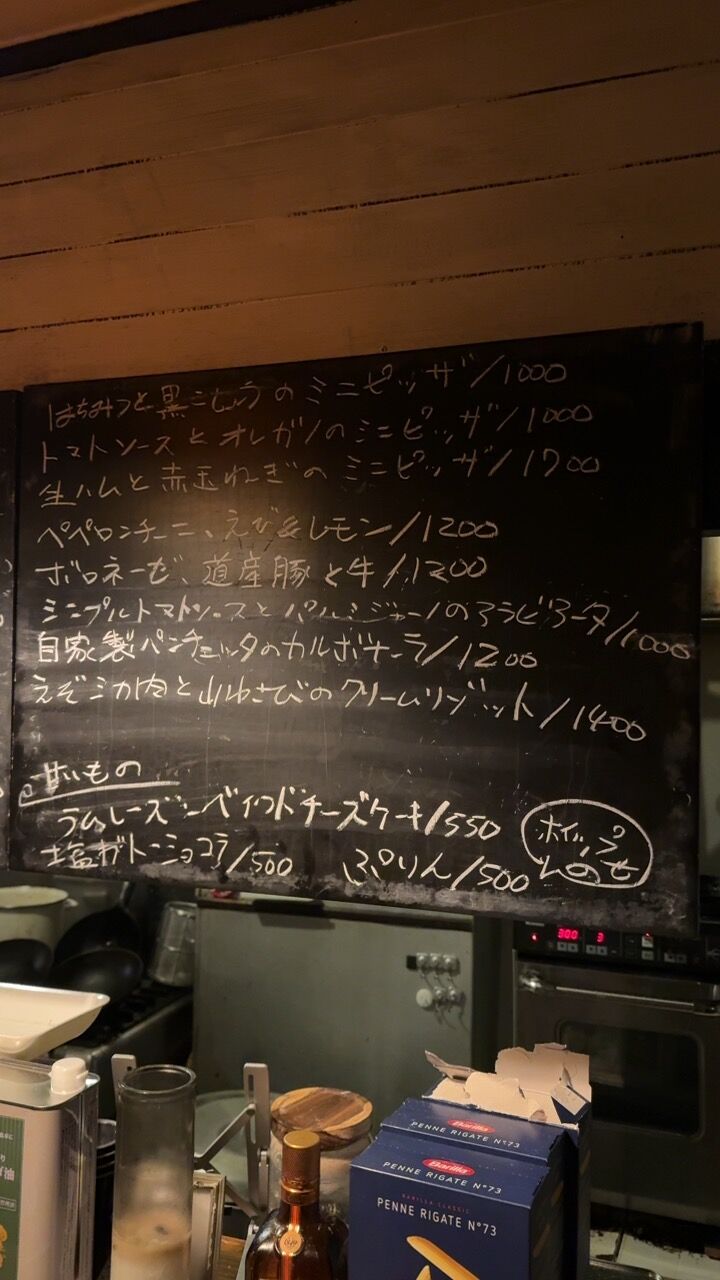 はちみつと黒こしょうのミニピッザ/1000
トマトソースとオレガノのミニピッザ/1000
生ハムと赤玉ねぎのミニピッザ/1700
ペペロンチーニ、えび&レモン/1200
ボロネーゼ、道産豚と牛/1200
シンプルトマトソースとパルミジャーノのアラビアータ/1000
自家製パンチェッタのカルボナーラ/1200
えぞシカ肉と山わさびのクリームリゾット/1400
甘いもの
ラムレーズンベイクドチーズケーキ/550
塩ガトーショコラ/500
ぷりん/500
ホイップ
のせ
300 3
Barilla
PENNE RIGATE N°73
Barilla
PENNE RIGATE N°73
BARILLA CLASSIC
PENNE RIGATE N°73